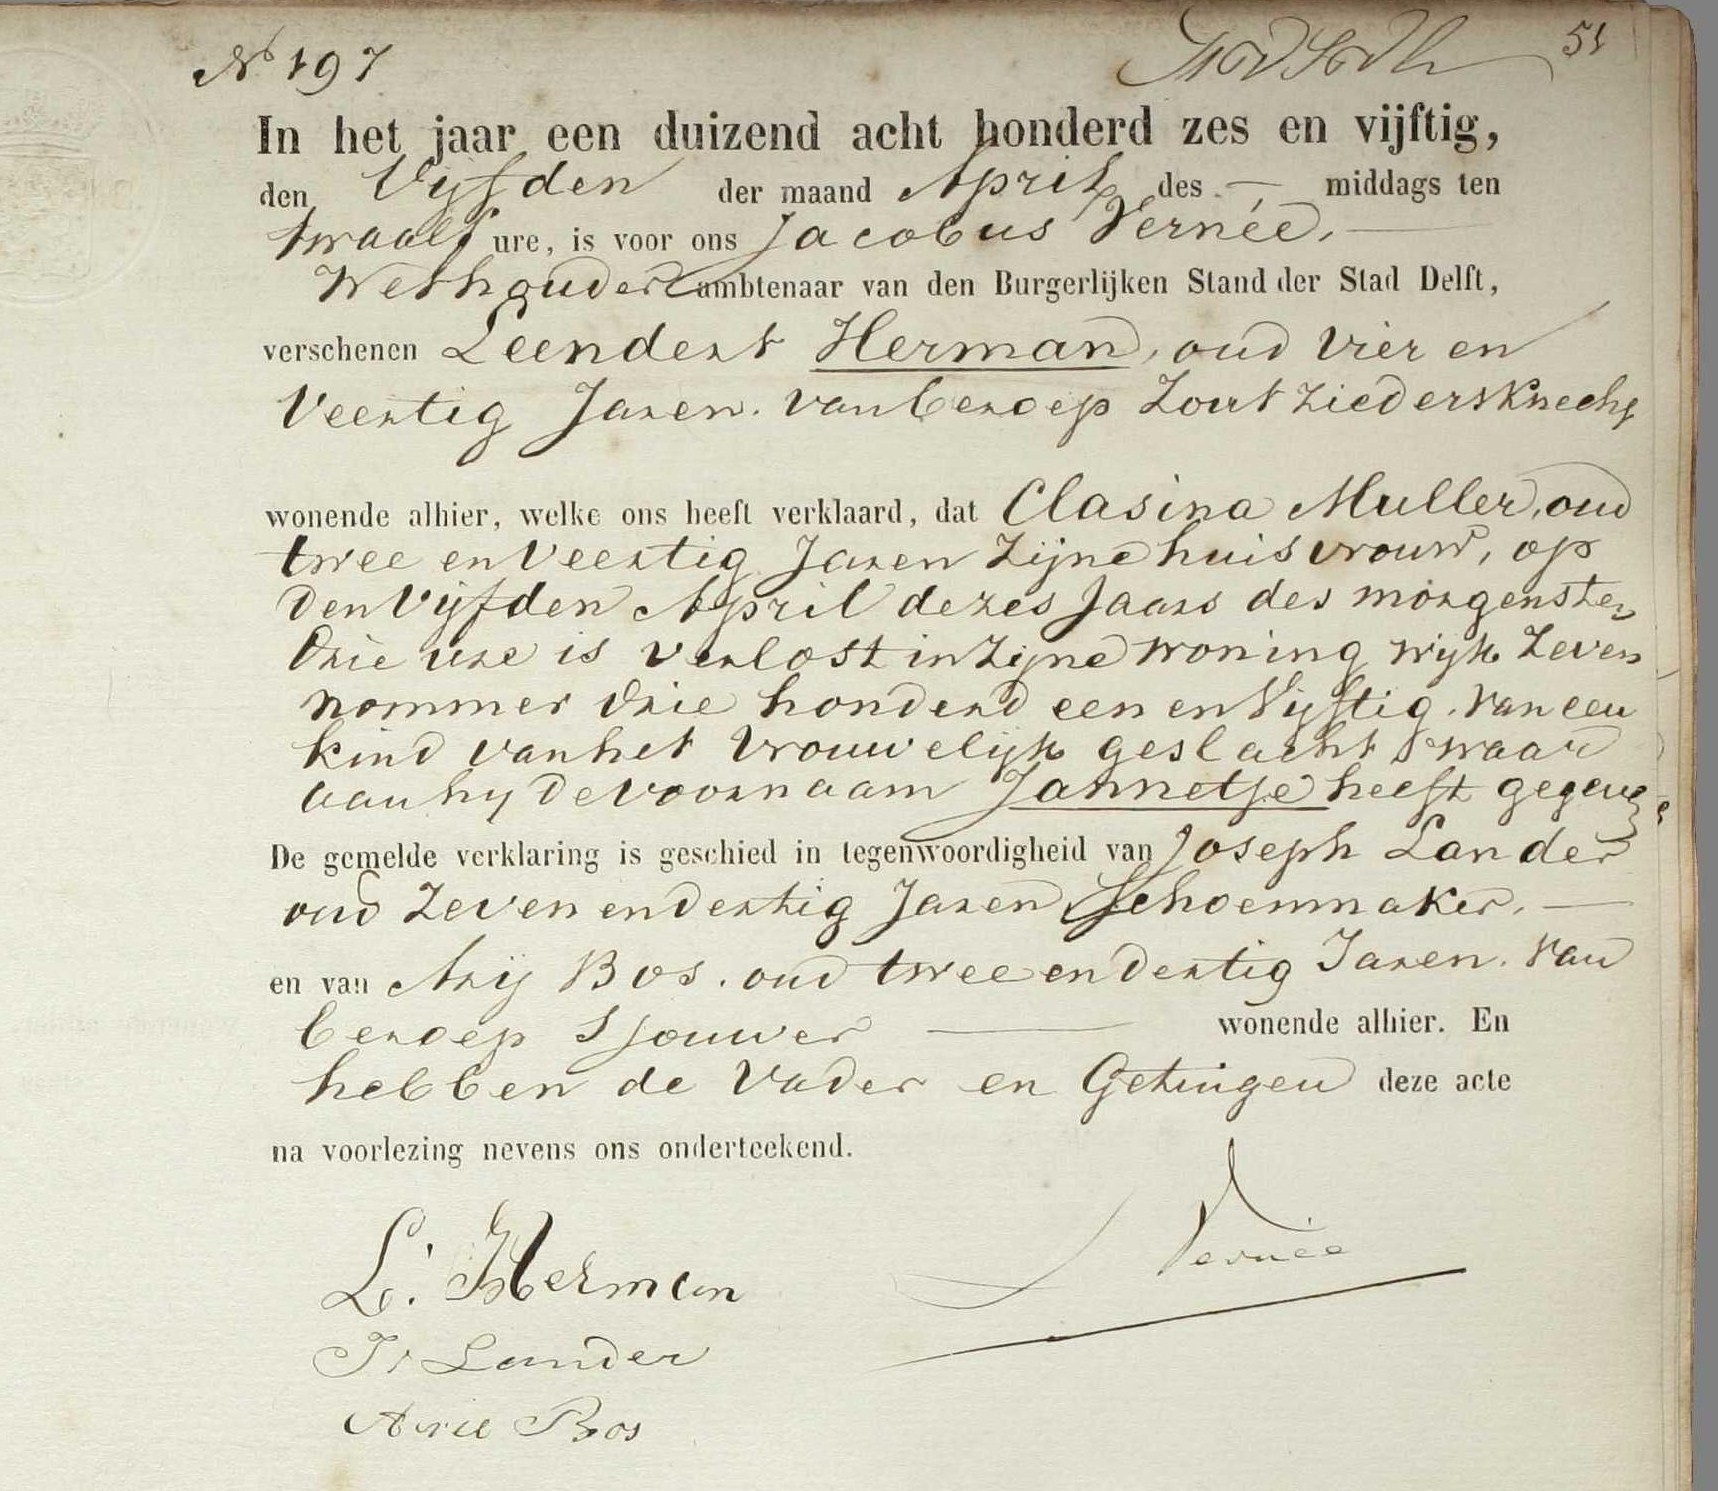 No 197
51
In het jaar een duizend acht honderd zes en vijftig,
den Vijfden der maand April des — middags ten
twaalf ure, is voor ons Jacobus Vernée, —
Wethouder ambtenaar van den Burgerlijken Stand der Stad Delft,
verschenen Leendert Herman, oud vier en
Veertig Jaren. van beroep Zoutziedersknecht
wonende alhier, welke ons heeft verklaard, dat Clasina Muller, oud
twee en Veertig Jaren zijne huisvrouw, op
den Vijfden April dezes Jaars des morgens ten
drie ure is verlost in zijne woning wijk Zeven
nommer drie honderd een en Vijftig. van een
kind van het Vrouwelijk geslacht waar
aan hij de voornaam Jannetje heeft gegeven
De gemelde verklaring is geschied in tegenwoordigheid van Joseph Lander
oud Zeven en dertig Jaren Schoenmaker. —
en van Arij Bos. oud twee en dertig Jaren. van
beroep Sjouwer — wonende alhier. En
hebben de Vader en Getuigen deze acte
na voorlezing nevens ons onderteekend.
L. Herman
Vernée
Js Lander
Arie Bos